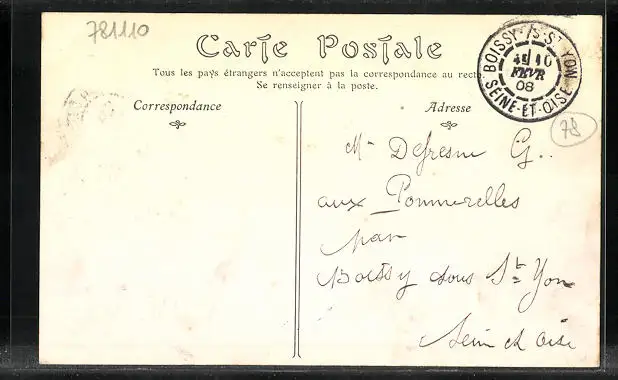 781110
Carte Postale
Tous les pays étrangers n'acceptent pas la correspondance au recto.
Se renseigner à la poste.
BOISSY-S-St YON
10
FEVR
08
SEINE-ET-OISE
78
Correspondance
Adresse
Mr Defresne G..
aux Pommerelles
par
Boissy sous St Yon
Seine et Oise